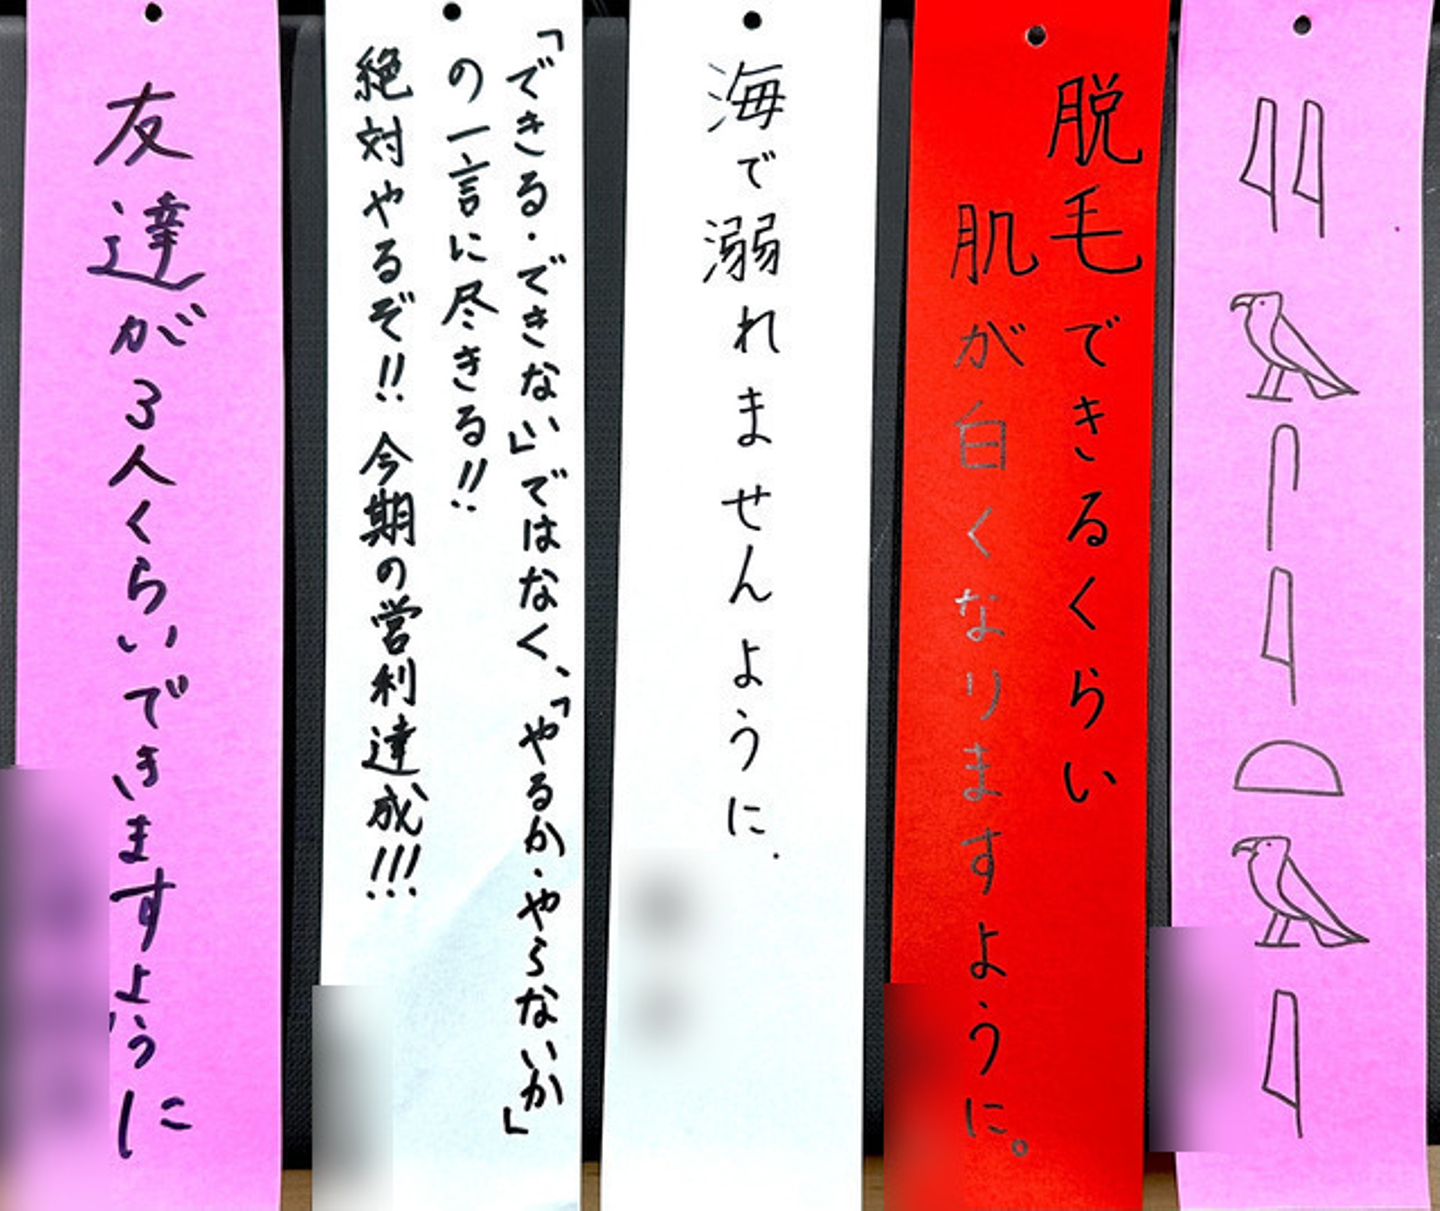 𓇌𓄿𓋴𓇋𓏏𓄿𓇋
脱毛できるくらい
肌が白くなりますように。
海で溺れませんように.
「できる・できない」ではなく、「やるか・やらないか」
の一言に尽きる!!
絶対やるぞ!! 今期の営利達成!!!
友達が3人くらいできますように